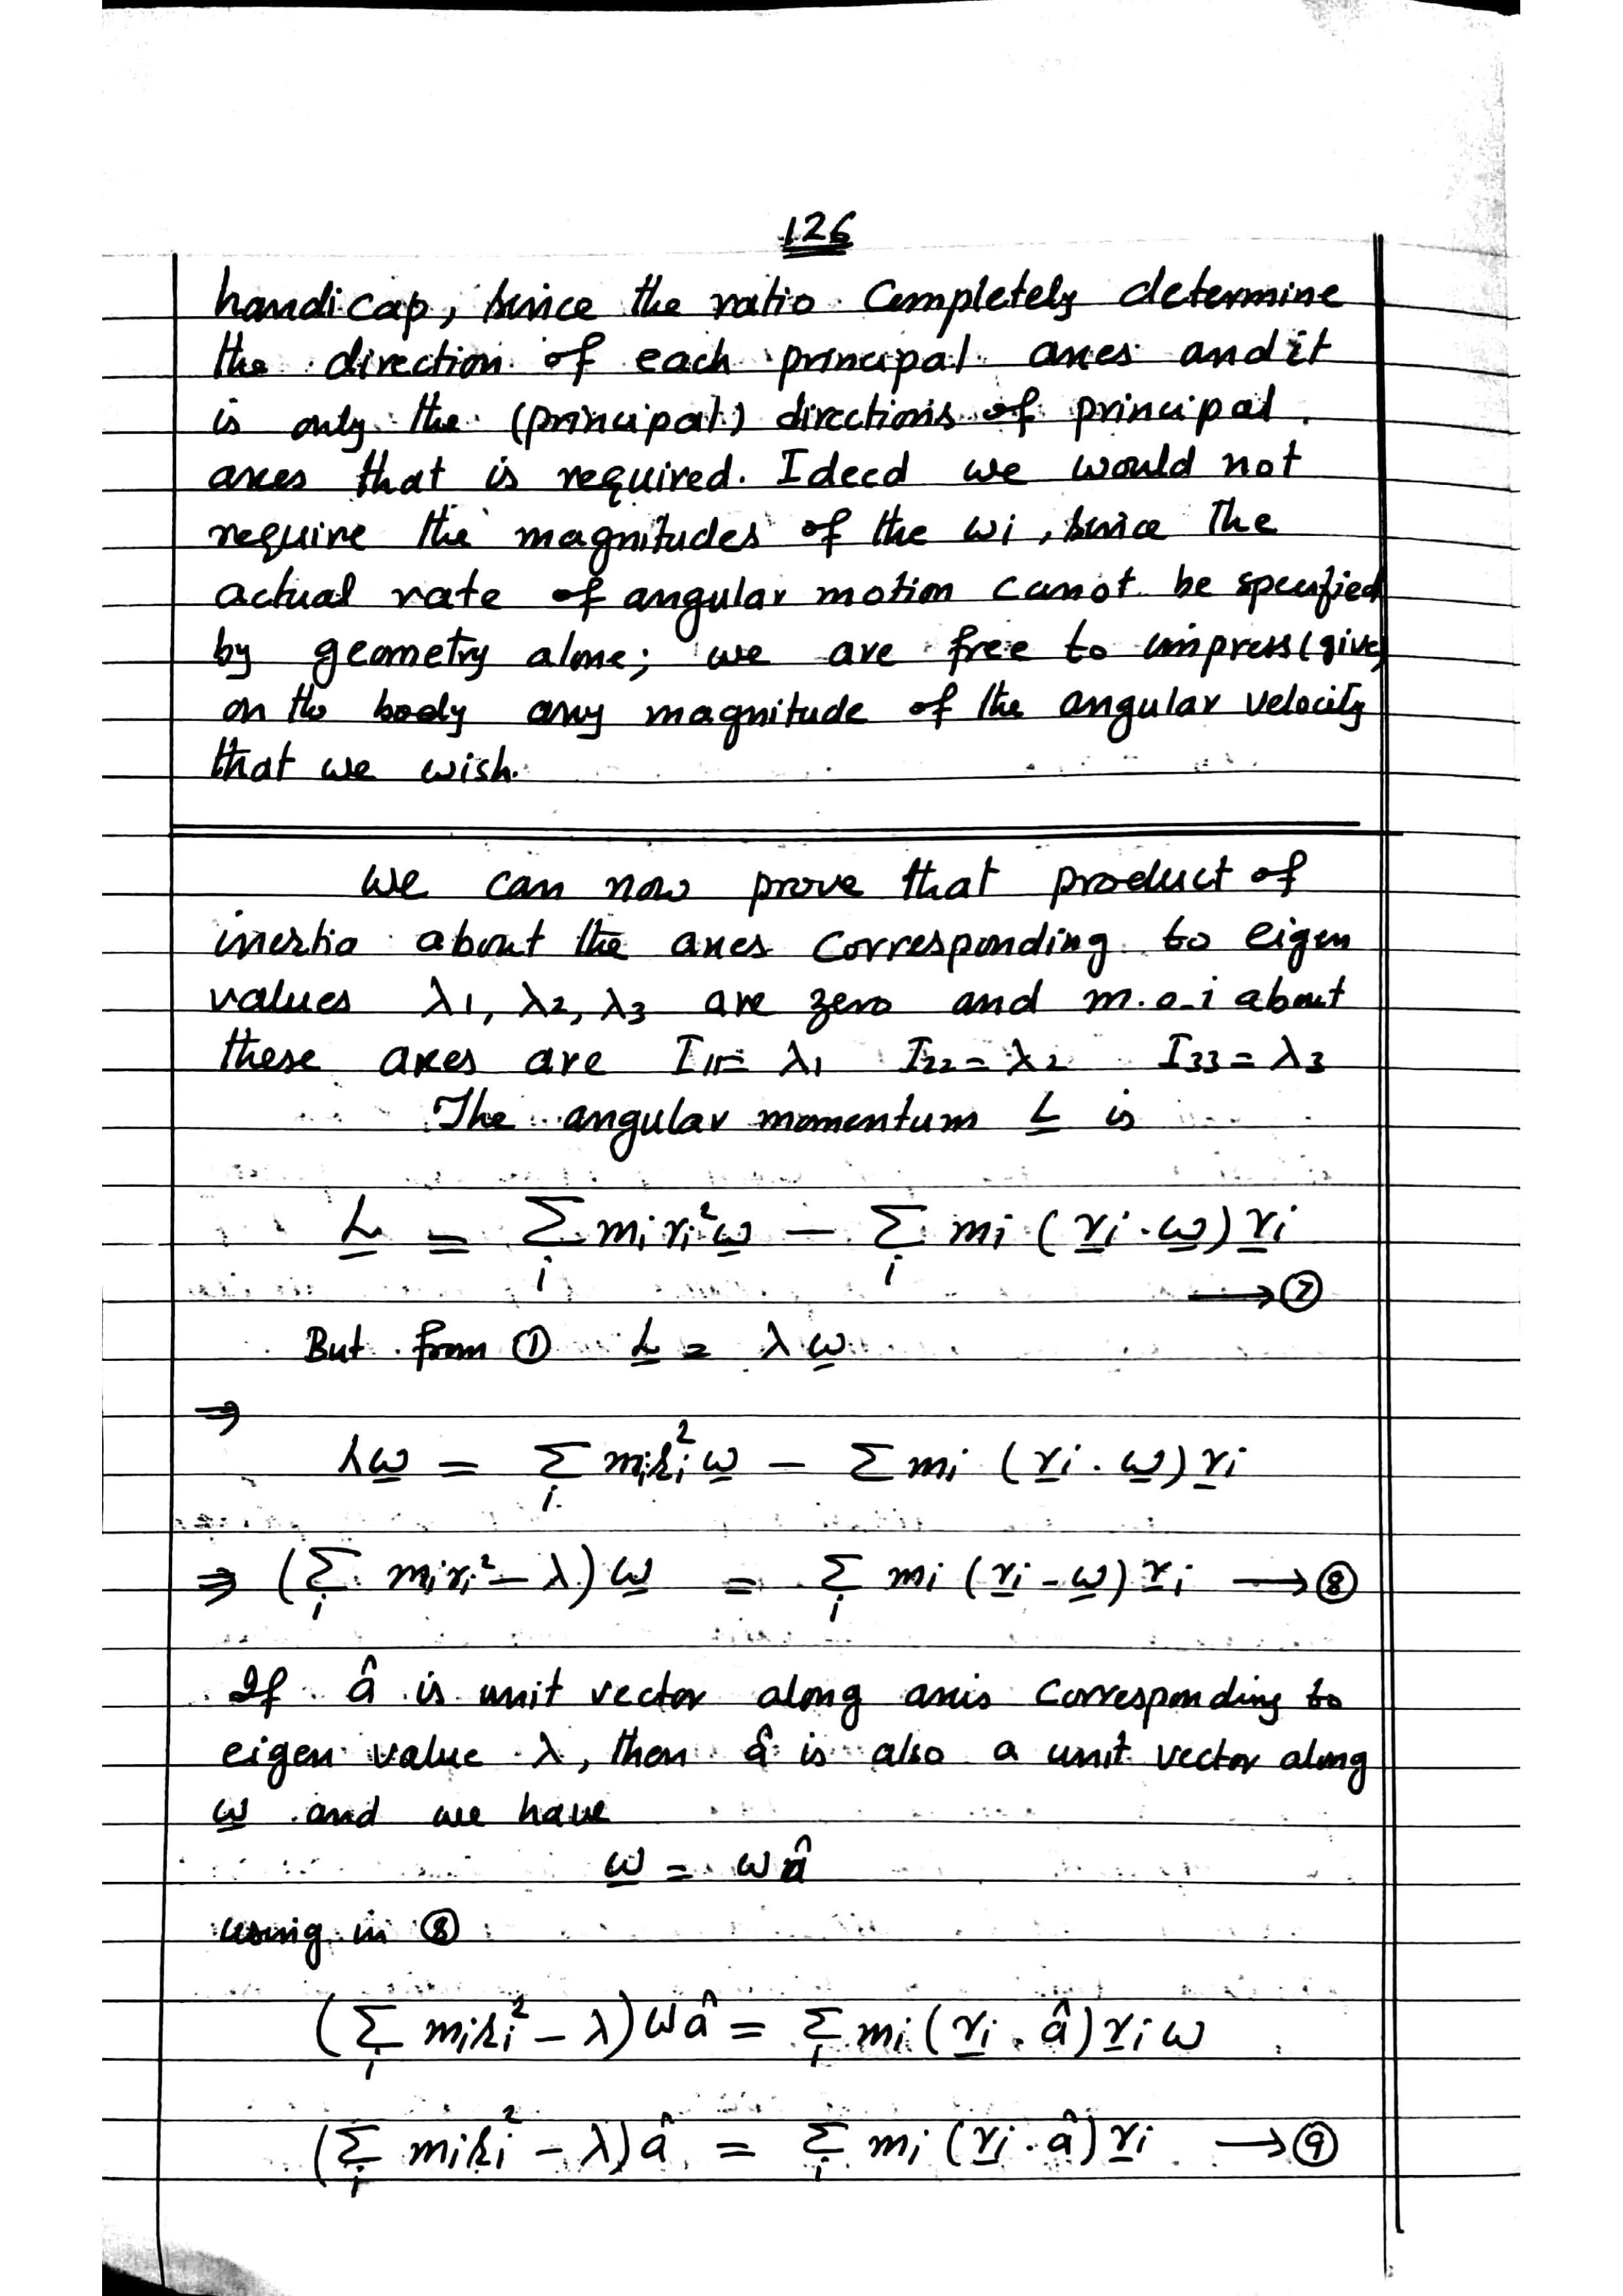 126
handicap, since the ratio completely determine
the direction of each principal axes and it
is only the (principal) directions of principal
axes that is required. Ideed we would not
require the magnitudes of the ωi, since the
actual rate of angular motion canot be specified
by geometry alone; we are free to impress (give)
on the body any magnitude of the angular velocity
that we wish.
We can now prove that product of
inertia about the axes corresponding to eigen
values λ1, λ2, λ3 are zero and m.o.i about
these axes are I11= λ1 I22= λ2 I33= λ3
The angular momentum L is
L = Σi mi ri² ω − Σi mi (ri . ω) ri
→ ⑦
But from ① L = λ ω
⇒
λω = Σi mi ri² ω − Σ mi (ri . ω) ri
⇒ (Σi mi ri² − λ) ω = Σi mi (ri - ω) ri → ⑧
If â is unit vector along axis corresponding to
eigen value λ, then â is also a unit vector along
ω and we have
ω = ω â
using in ⑧
(Σi mi ri² − λ) ω â = Σi mi (ri . â) ri ω
(Σi mi ri² − λ) â = Σi mi (ri . â) ri → ⑨